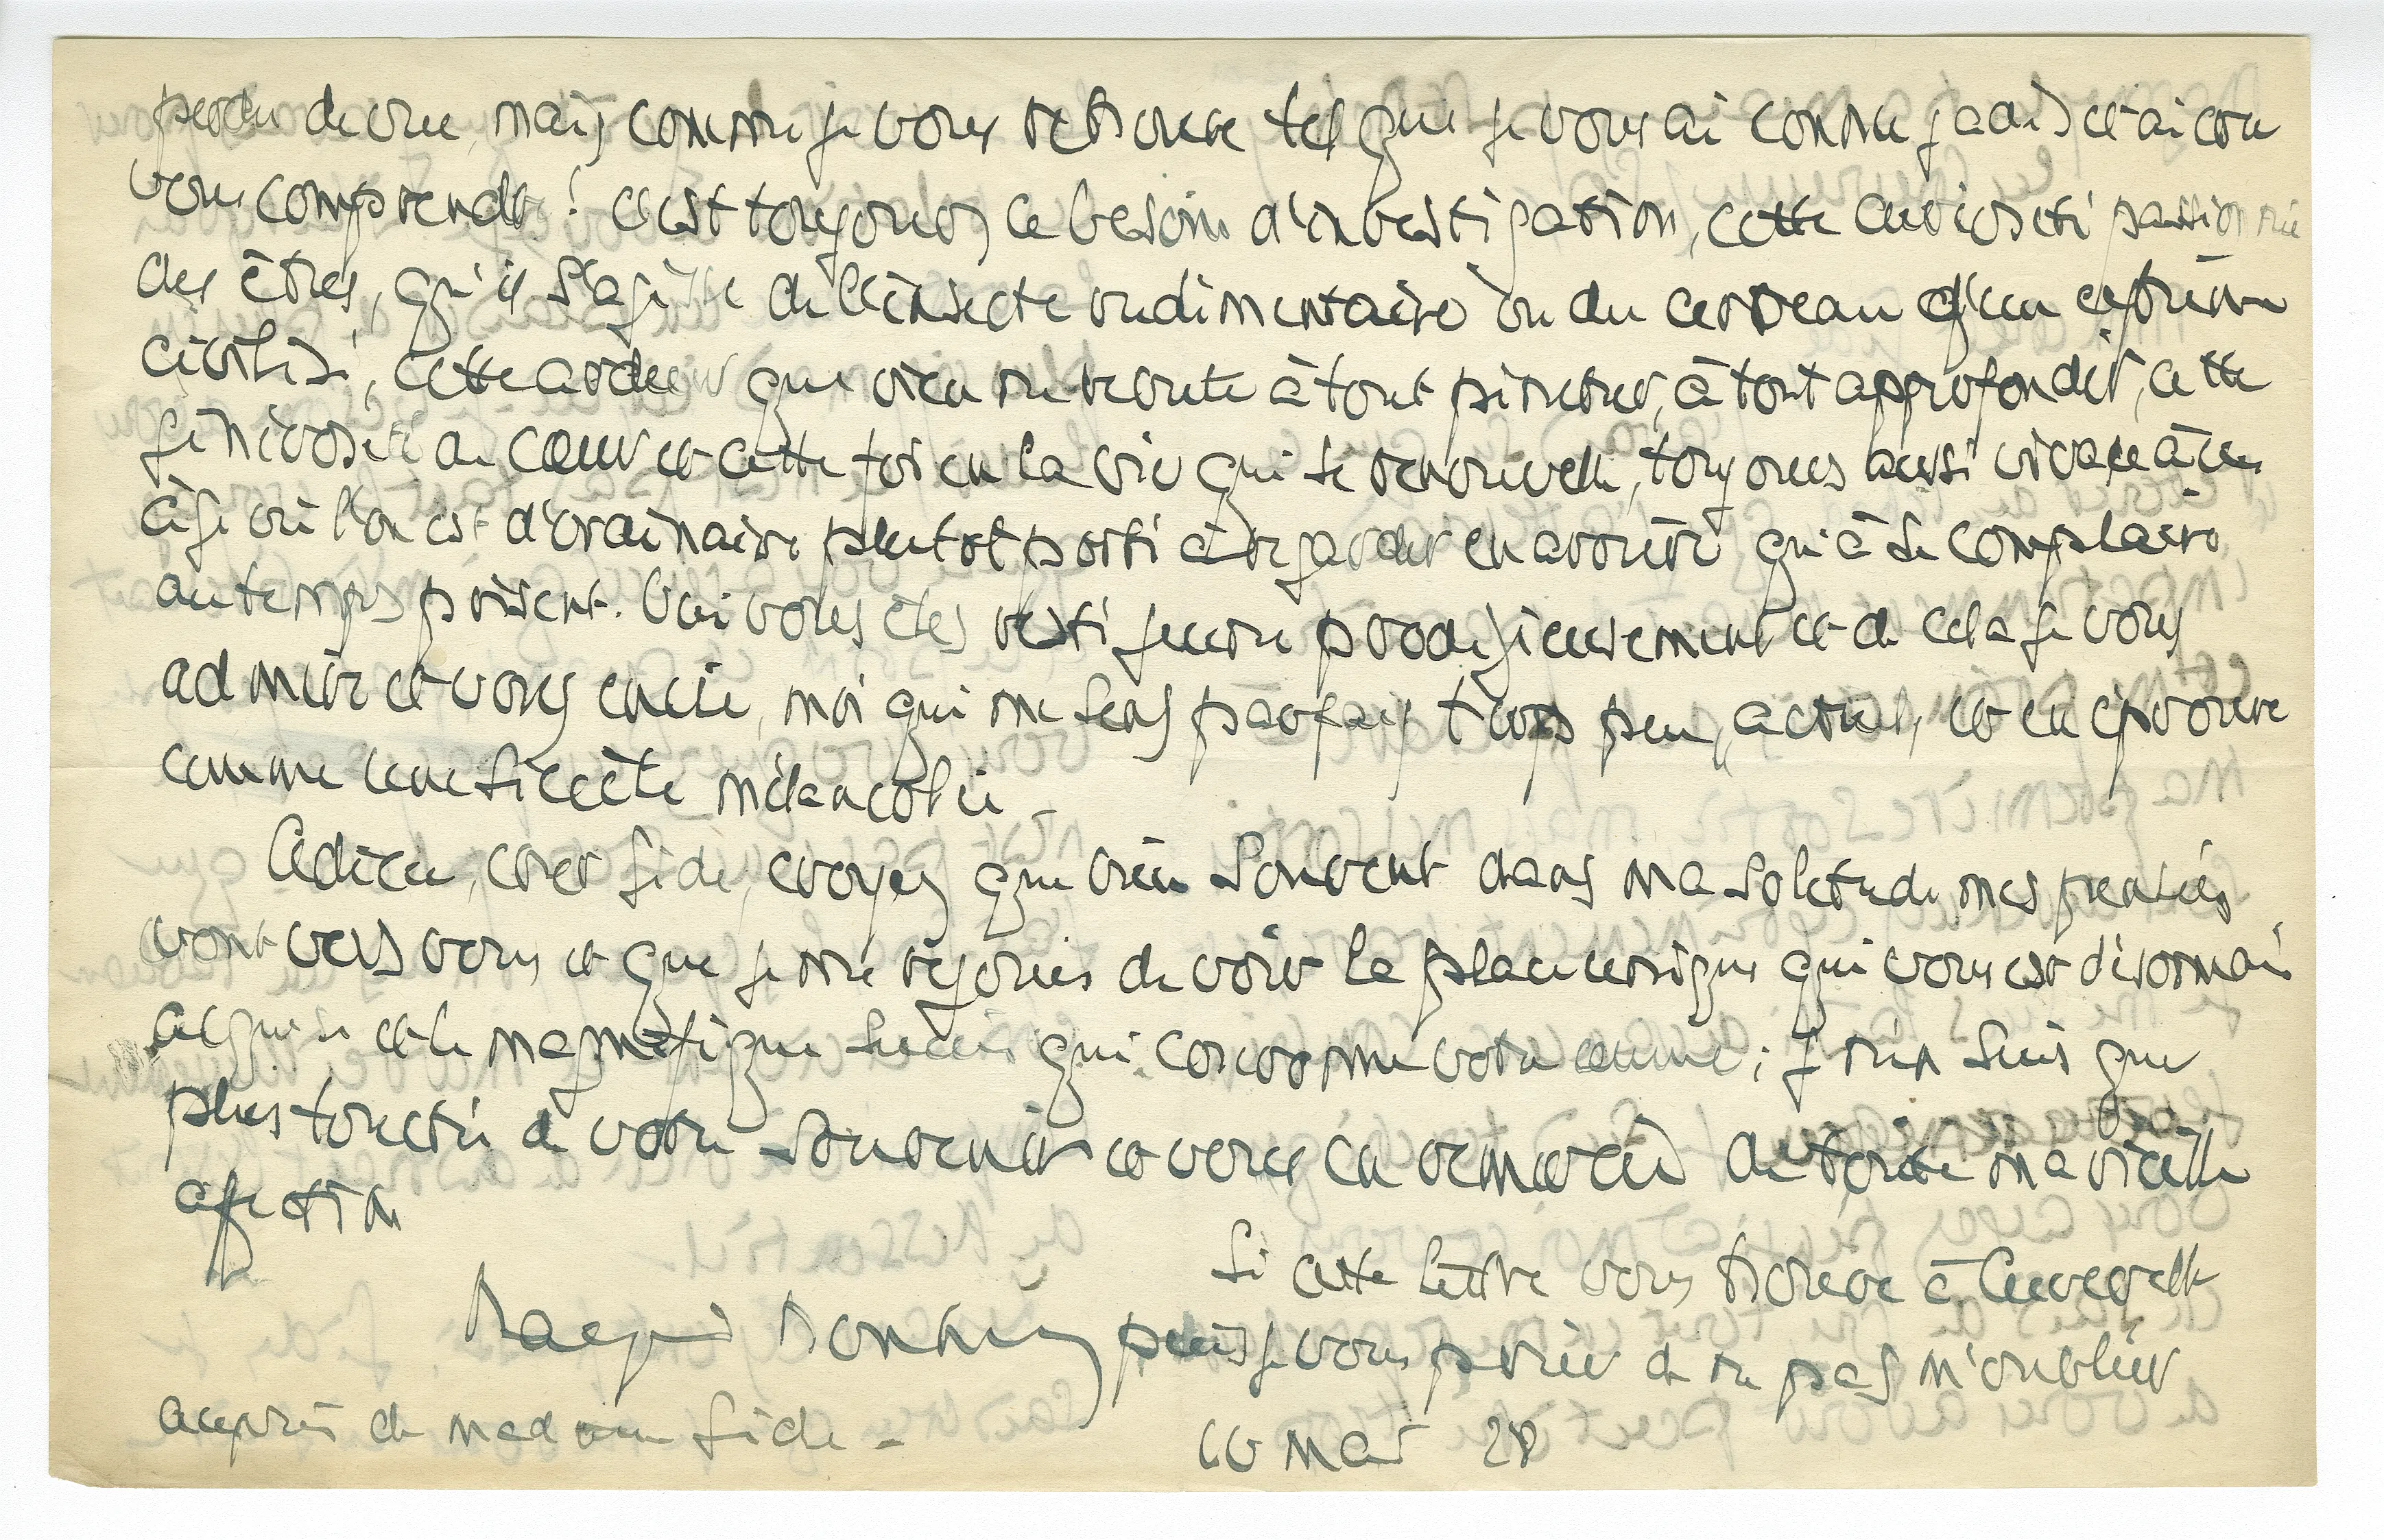 perdu de vue, mais comme je vous retrouve tel que je vous ai connu jadis et ai cru
vous comprendre ! c'est toujours ce besoin d'investigation, cette curiosité passionnée
des êtres, qu'il s'agisse de l'insecte rudimentaire ou du cerveau d'un extrême
civilisé, cette ardeur que rien ne rebute à tout pénétrer, à tout approfondir, cette
générosité du cœur et cette foi en la vie qui se renouvelle, toujours aussi vivace à un
âge où l'on est d'ordinaire plutot porté à regarder en arrière qu'à se complaire
au temps présent. Oui vous êtes resté jeune prodigieusement et de cela je vous
admire et vous envie, moi qui me sens parfois trop peu "actuel" et en éprouve
comme une secrète mélancolie -
Adieu, cher Gide, croyez que bien souvent dans ma solitude mes pensées
vont vers vous et que je me réjouis de voir la place unique qui vous est désormais
acquise et le magnifique succès qui couronne votre œuvre ; je n'en suis que
plus touché de votre souvenir et vous en remercie de toute ma vieille
affection
Si cette lettre vous trouve à Cuverville
puis je vous prier de ne pas m'oublier
auprès de madame Gide -
28